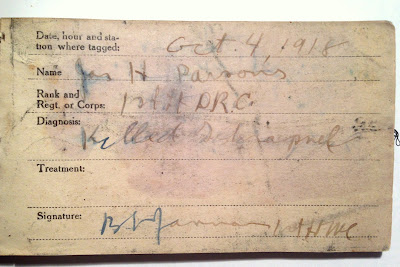 Date, hour and sta-
tion where tagged: Oct. 4 1918
Name Jas H Parsons
Rank and
Regt. or Corps: 1st Lt D.R.C.
Diagnosis:
Killed Shrapnel
Treatment:
Signature: 1st Lt MC